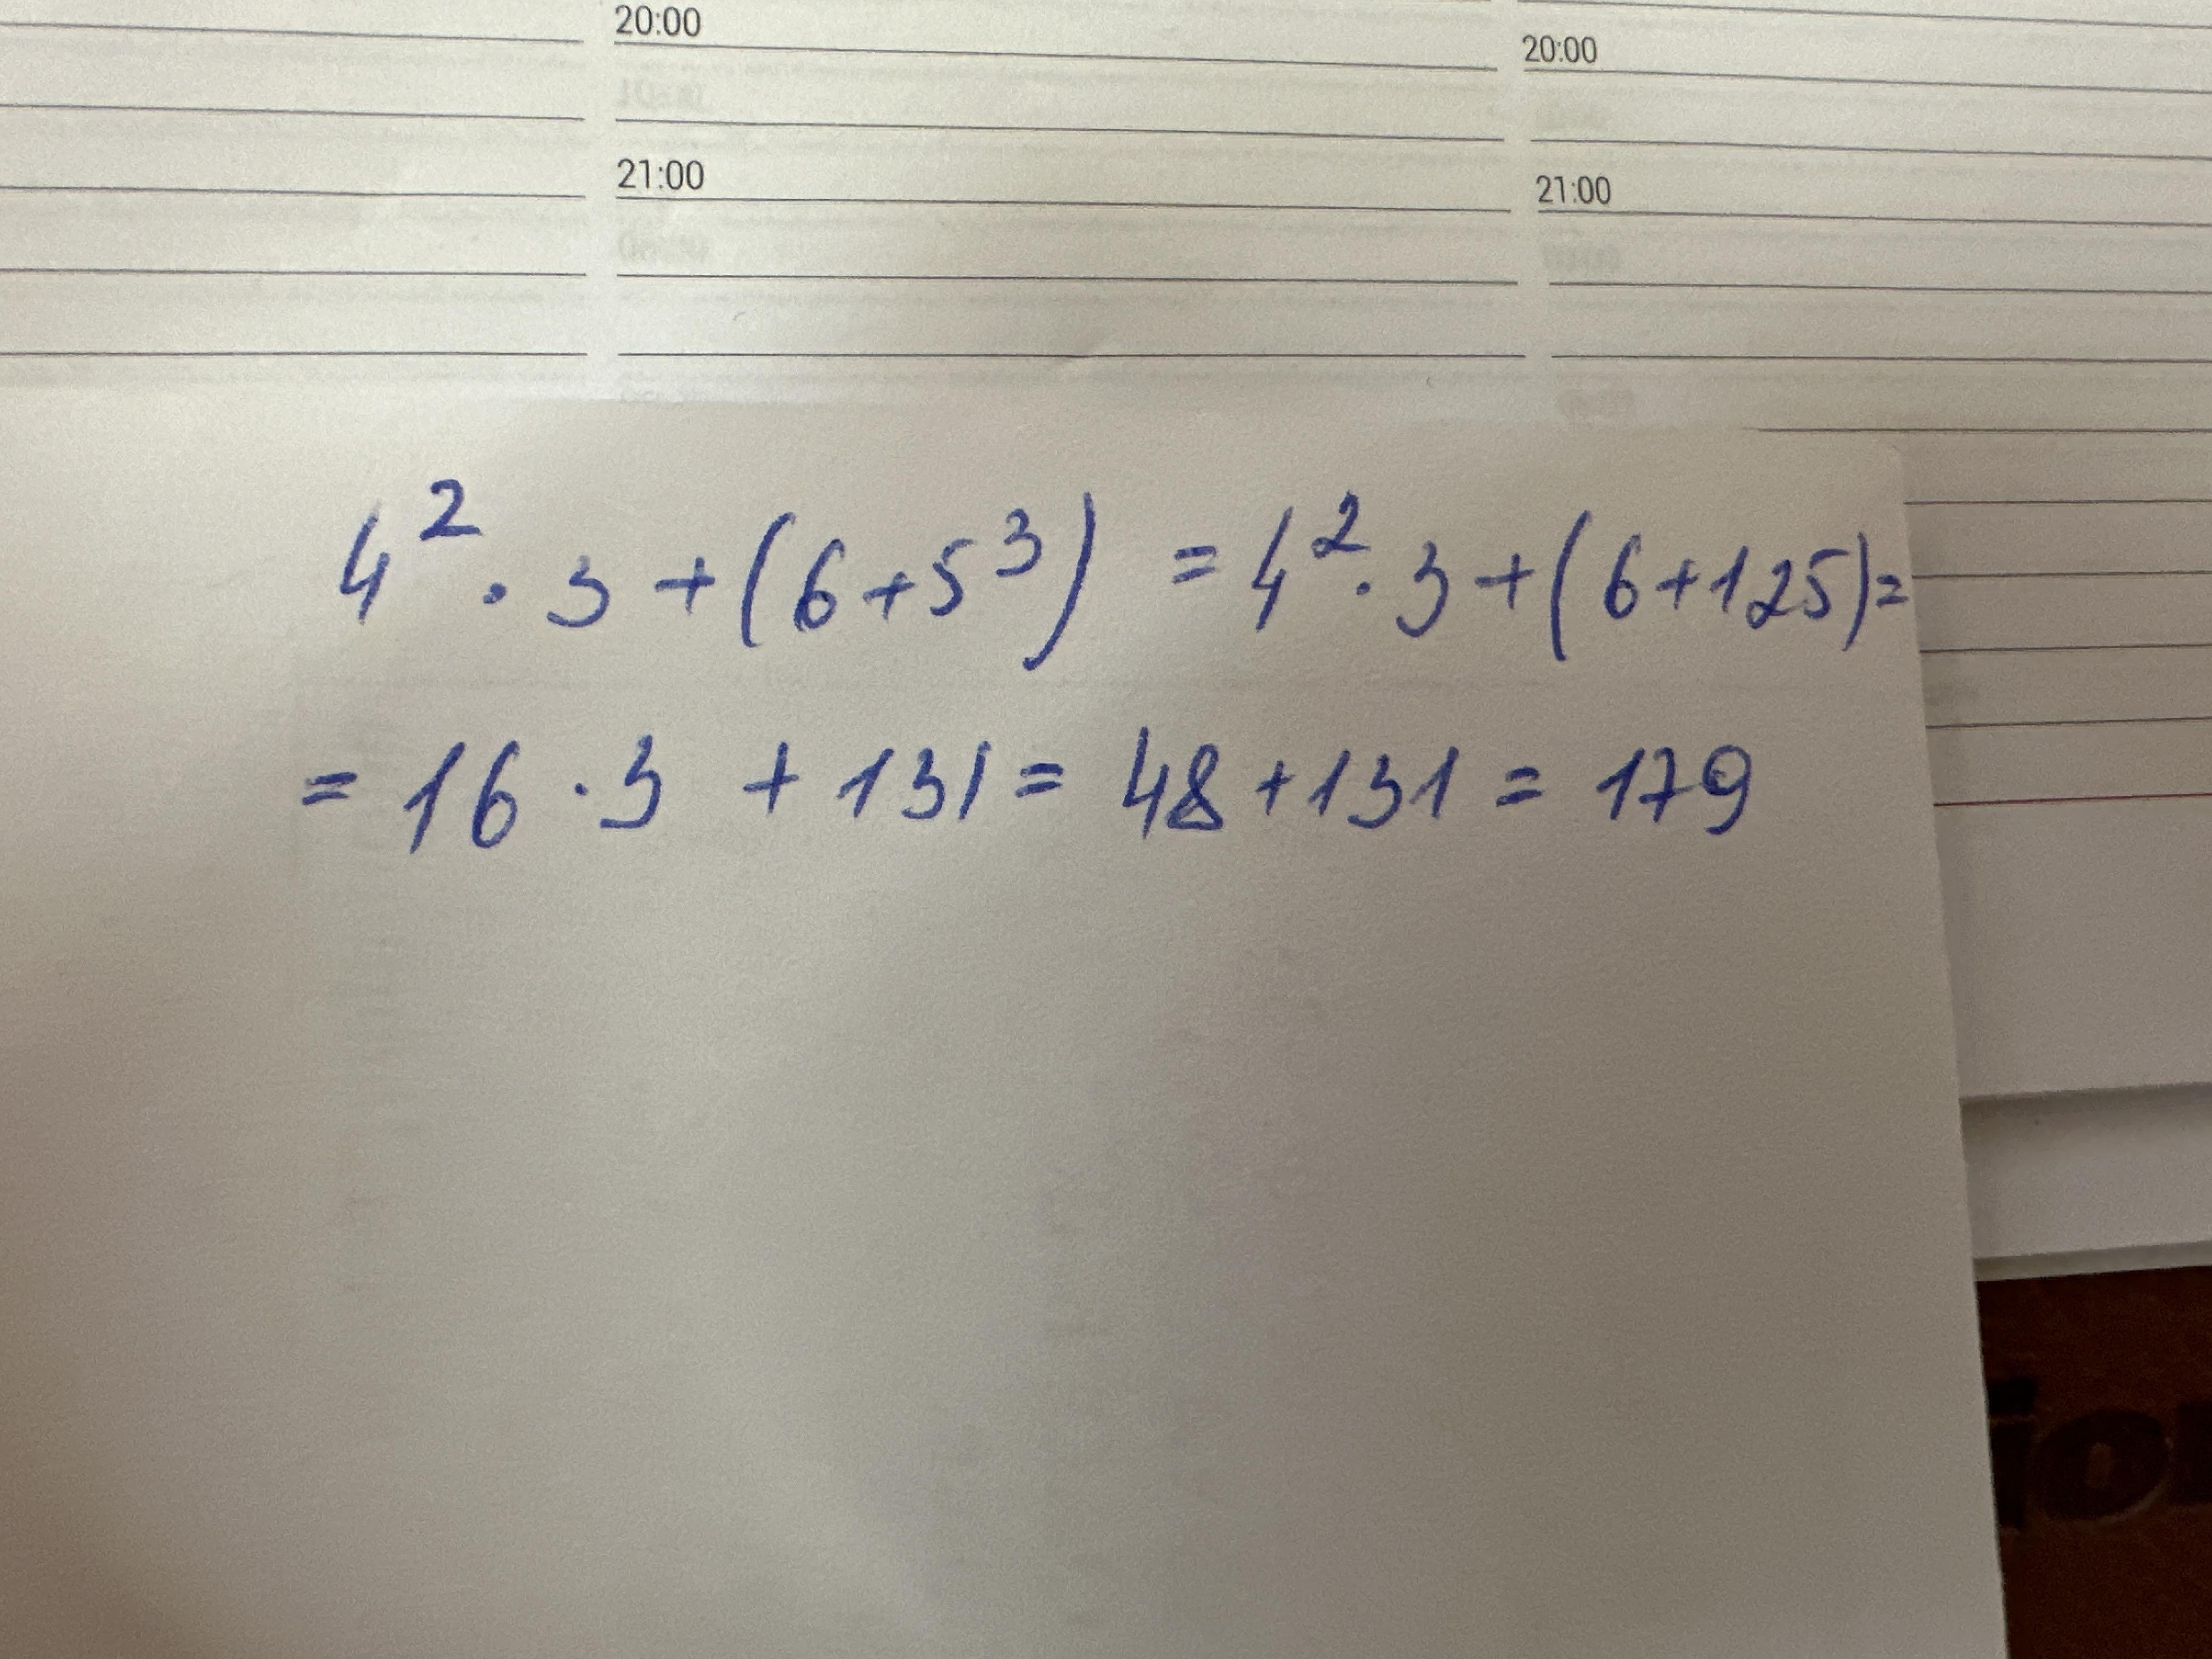 20:00
20:00
21:00
21:00
4² · 3 + (6 + 5³) = 4² · 3 + (6 + 125) =
= 16 · 3 + 131 = 48 + 131 = 179